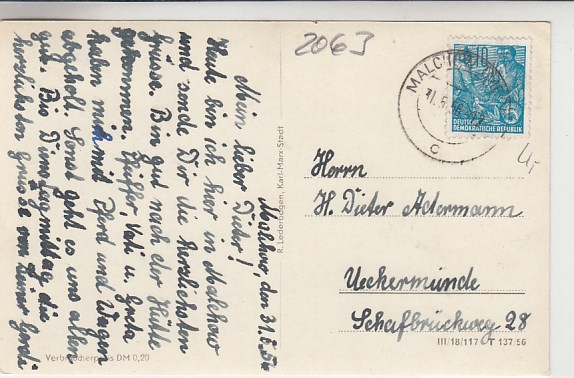 2063
Malchow den 31.8.5
Mein lieber Dieter!
Heute bin ich hier in Malchow
und sende Dir die herzlichsten
Grüsse. Bin gut nach der Hütte
gekommen. Pfeiffer, Vati u. Greta
haben mich mit Pferd und Wagen
abgeholt. Sonst geht es uns allen
gut. Bis Dienstagmittag die
herzlichsten Grüsse von Deiner Gerdi
Verbraucherpreis DM 0,20
R. Lederbogen, Karl-Marx-Stadt
MALCHOW
c
10
DEUTSCHE
DEMOKRATISCHE REPUBLIK
4,-
Herrn
H. Dieter Ackermann
Ueckermünde
Schafbrückweg 28
III/18/117 T 137/56